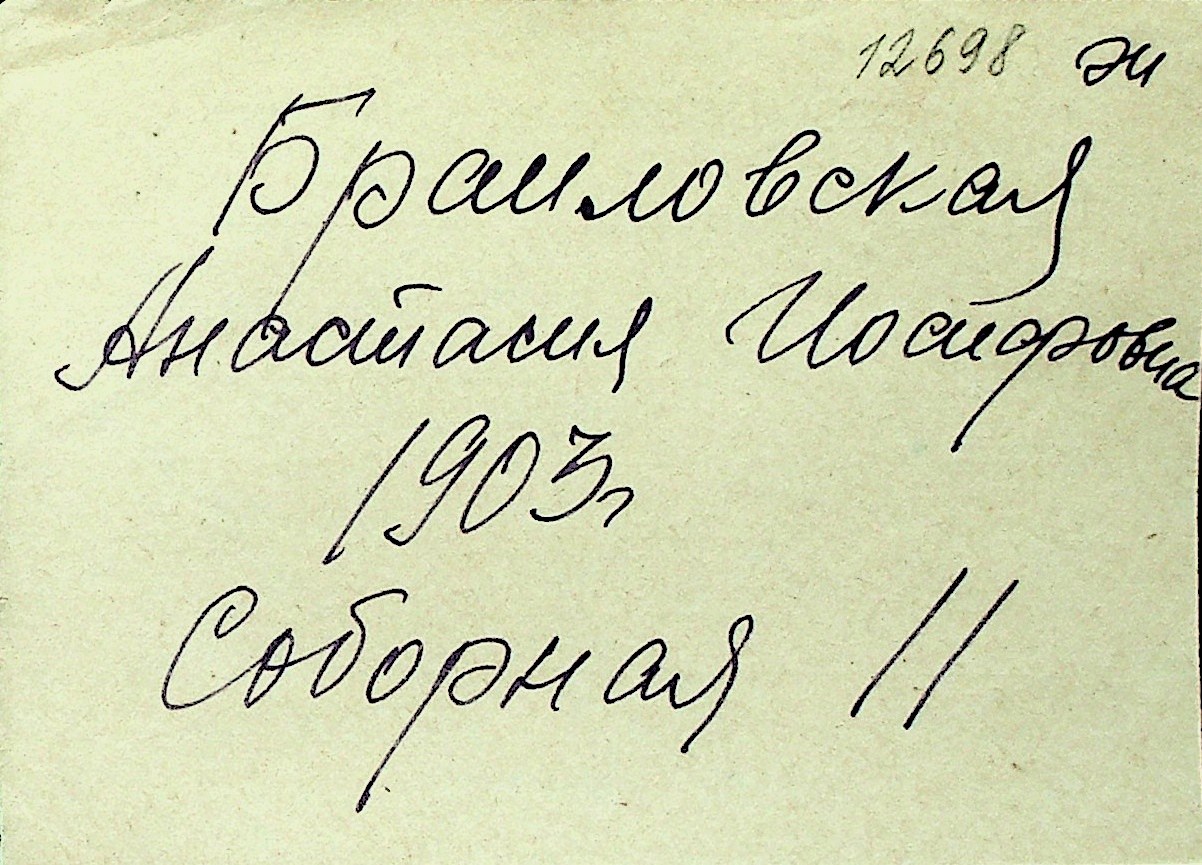 12698 эи
Браиловская
Анастасия Иосифовна
1903г
Соборная 11